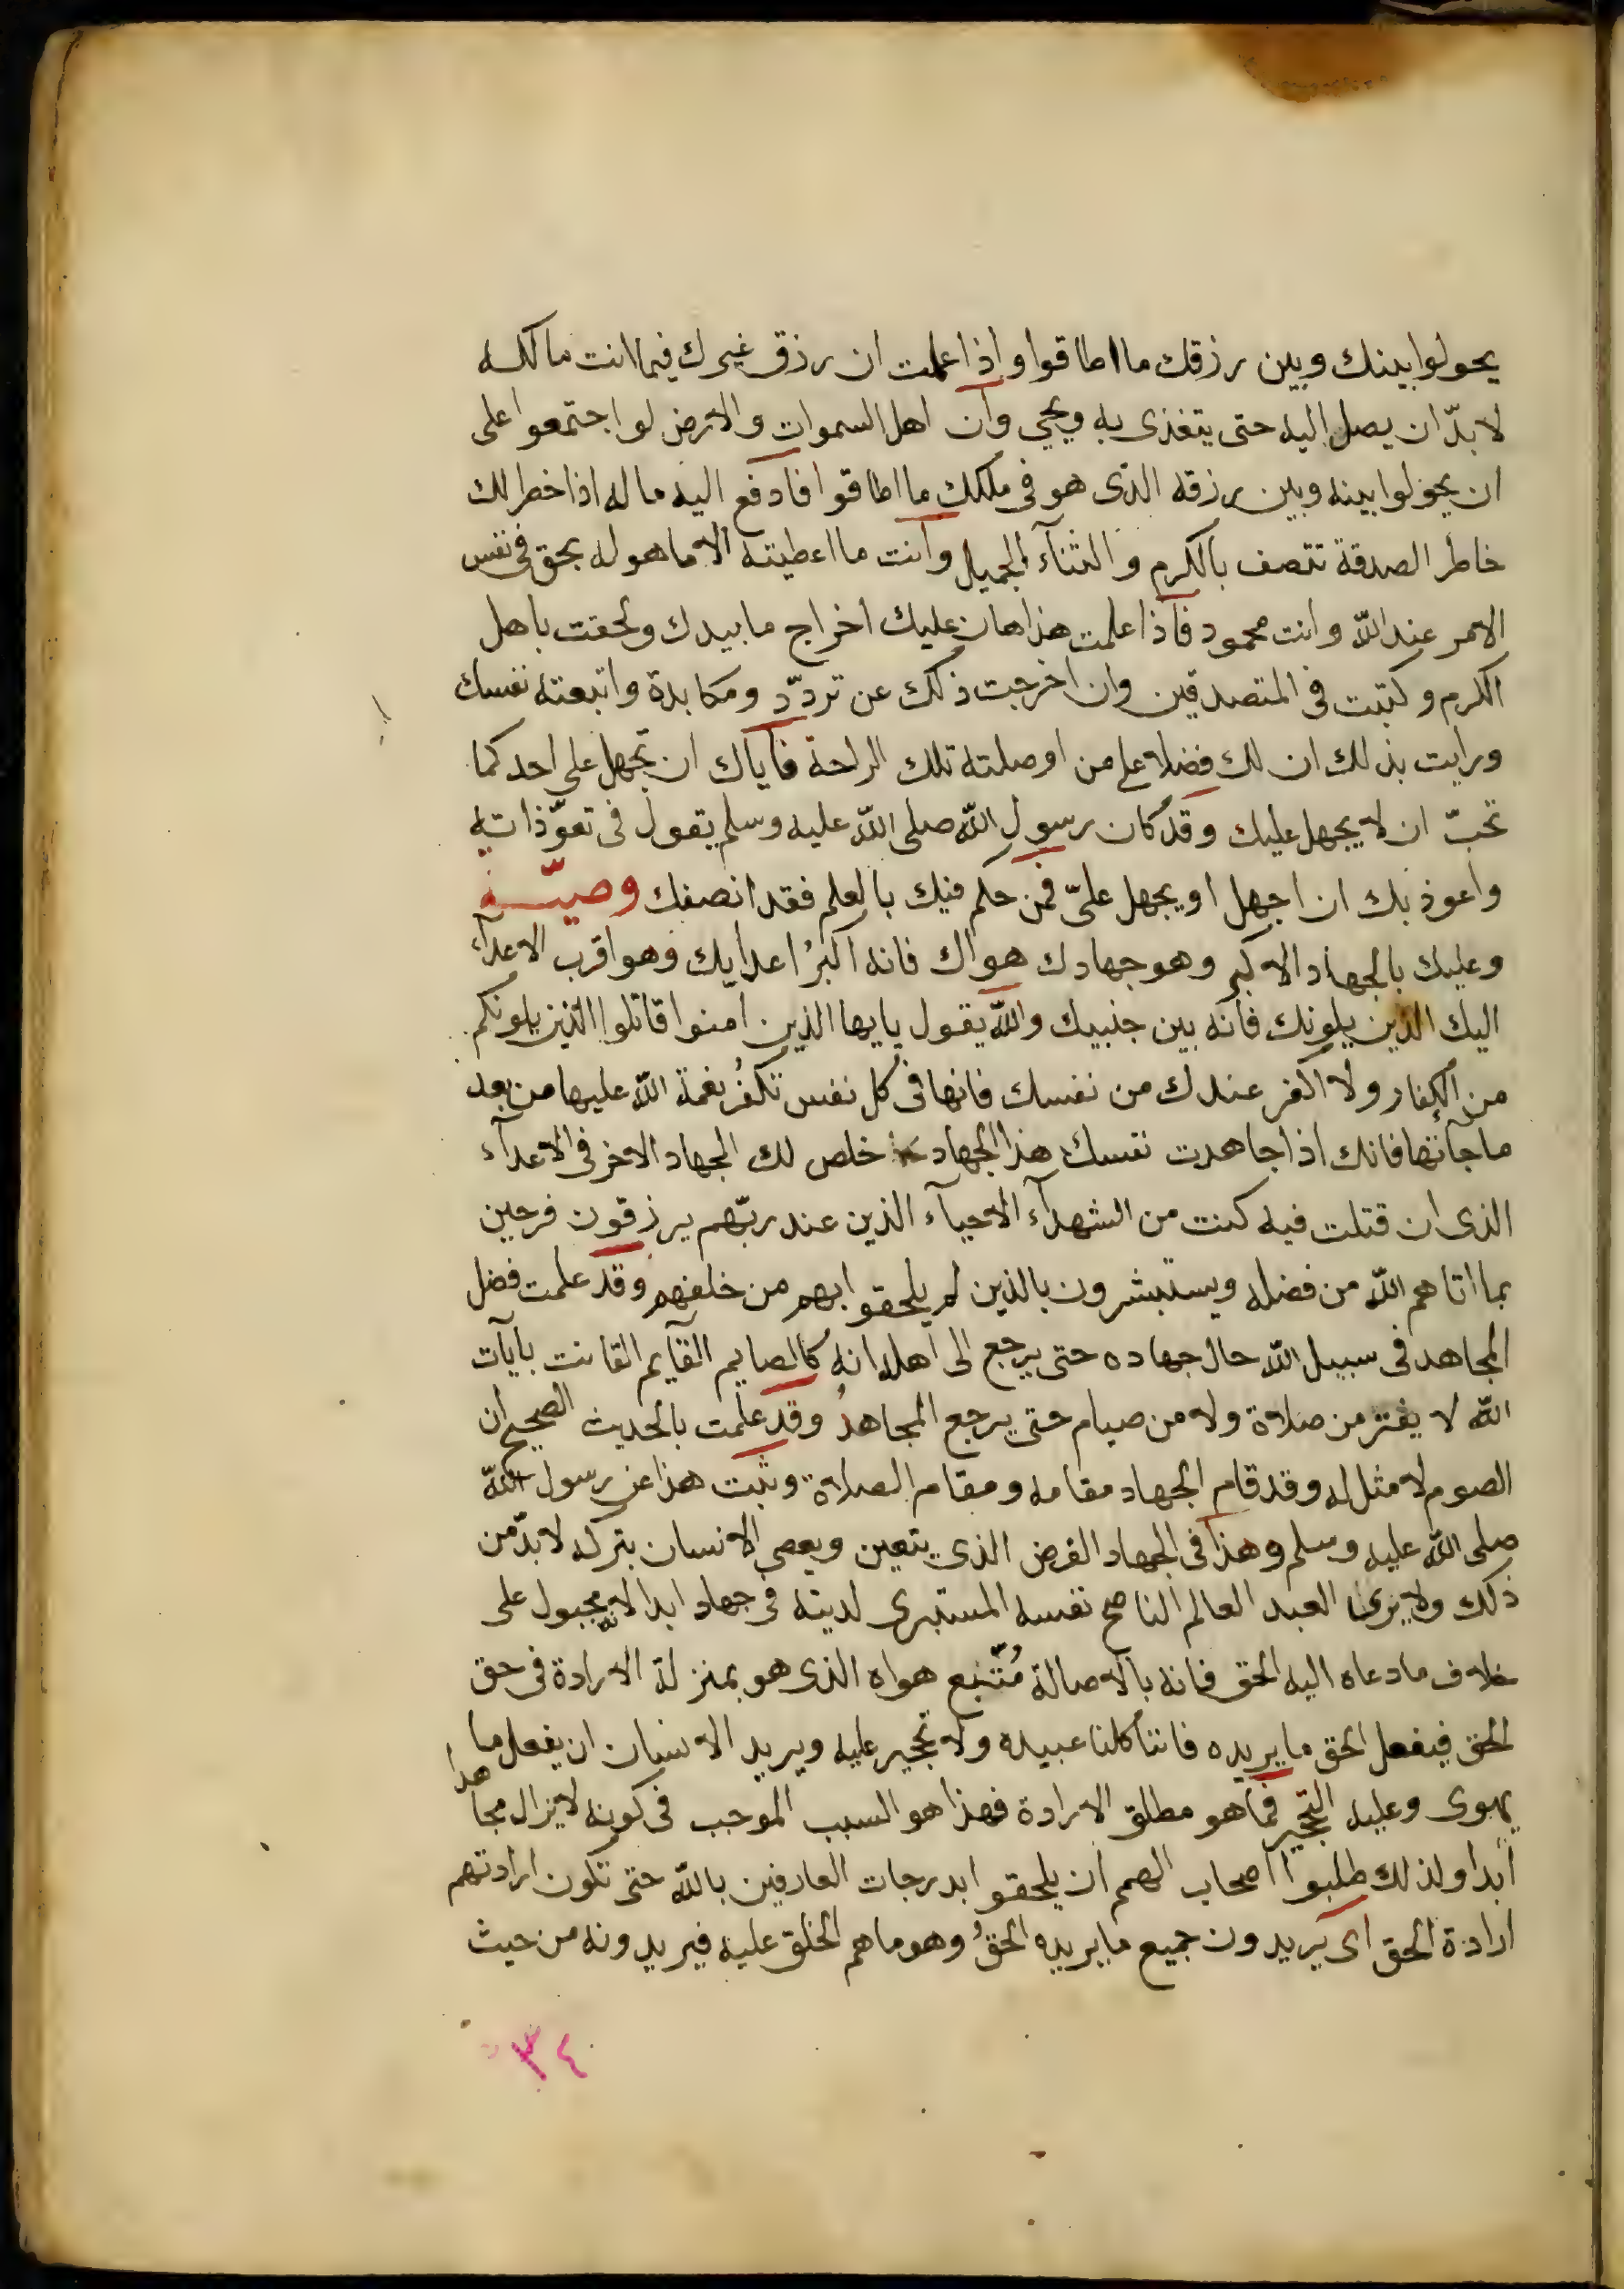 يحولوا بينك وبين رزقك ما اطاقوا واذا علمت ان رزق غيرك فيما انت مالكه
لا بدّ ان يصل اليه حتى يتغذى به ويحيى وان اهل السموات والارض لو اجتمعوا على
ان يحولوا بينه وبين رزقه الذى هو فى ملكك ما اطاقوا فادفع اليه ماله اذا خطر لك
خاطر الصدقة تتصف بالكرم والثنآء الجميل وانت ما اعطيته الا ما هو له بحق فى نفس
الامر عند الله وانت محمود فاذا علمت هذا هان عليك اخراج ما بيدك ولحقت باهل
الكرم وكتبت فى المتصدقين وان اخرجت ذلك عن تردّد ومكابدة واتبعته نفسك
ورايت بذلك ان لك فضلا على من اوصلته تلك الراحة فاياك ان تجهل على احد كما
تحبّ ان لا يجهل عليك وقد كان رسول الله صلى الله عليه وسلم يقول فى تعوّذاته
واعوذ بك ان اجهل او يجهل علىّ فمن حكم فيك بالعلم فقد انصفك وصيّة
وعليك بالجهاد الاكبر وهو جهادك هواك فانه اكبرُ اعدايك وهو اقرب الاعدآء
اليك الذين يلونك فانه بين جنبيك والله يقول يايها الذين امنوا قاتلوا الذين يلونكم
من الكفار ولا اكفر عندك من نفسك فانها فى كل نفس تكفُر نعمة الله عليها من بعد
ما جآتها فانك اذا جاهدت نفسك هذا الجهاد خلص لك الجهاد الاخر فى الاعدآء
الذى ان قتلت فيه كنت من الشهدآء الاحيآء الذين عند ربّهم يرزقون فرحين
بما اتاهم الله من فضله ويستبشرون بالذين لم يلحقوا بهم من خلفهم وقد علمت فضل
المجاهد فى سبيل الله حال جهاده حتى يرجع الى اهله انه كالصايم القآيم القانت بآيات
الله لا يفتر من صلاة ولا من صيام حتى يرجع المجاهدُ وقد علمت بالحديث الصحيح ان
الصوم لا مثل له وقد قام الجهاد مقامه ومقام الصلاة وثبت هذا عن رسول الله
صلى الله عليه وسلم وهذا فى الجهاد الفرض الذى يتعين ويعصى الانسان بتركه لا بدّ من
ذلك ولا يزال العبد العالم الناصح نفسه المستبرى لدينه فى جهاد ابدا لانه مجبول على
خلاف ما دعاه اليه الحق فانه بالاصالة مُتّبع هواه الذى هو بمنزلة الارادة فى حق
الحق فيفعل الحق ما يريده فاننا كلنا عبيده ولا تحجير عليه ويريد الانسان ان يفعل ما
يهوى وعليه التحجير فما هو مطلق الارادة فهذا هو السبب الموجب فى كونه لا يزال مجاهدا
ابدا ولذلك طلبوا اصحاب الهمم ان يلحقوا بدرجات العارفين بالله حتى تكون ارادتهم
ارادة الحق اى يريدون جميع ما يريده الحقُ وهو ما هم الخلق عليه فيريدونه من حيث
٣٤